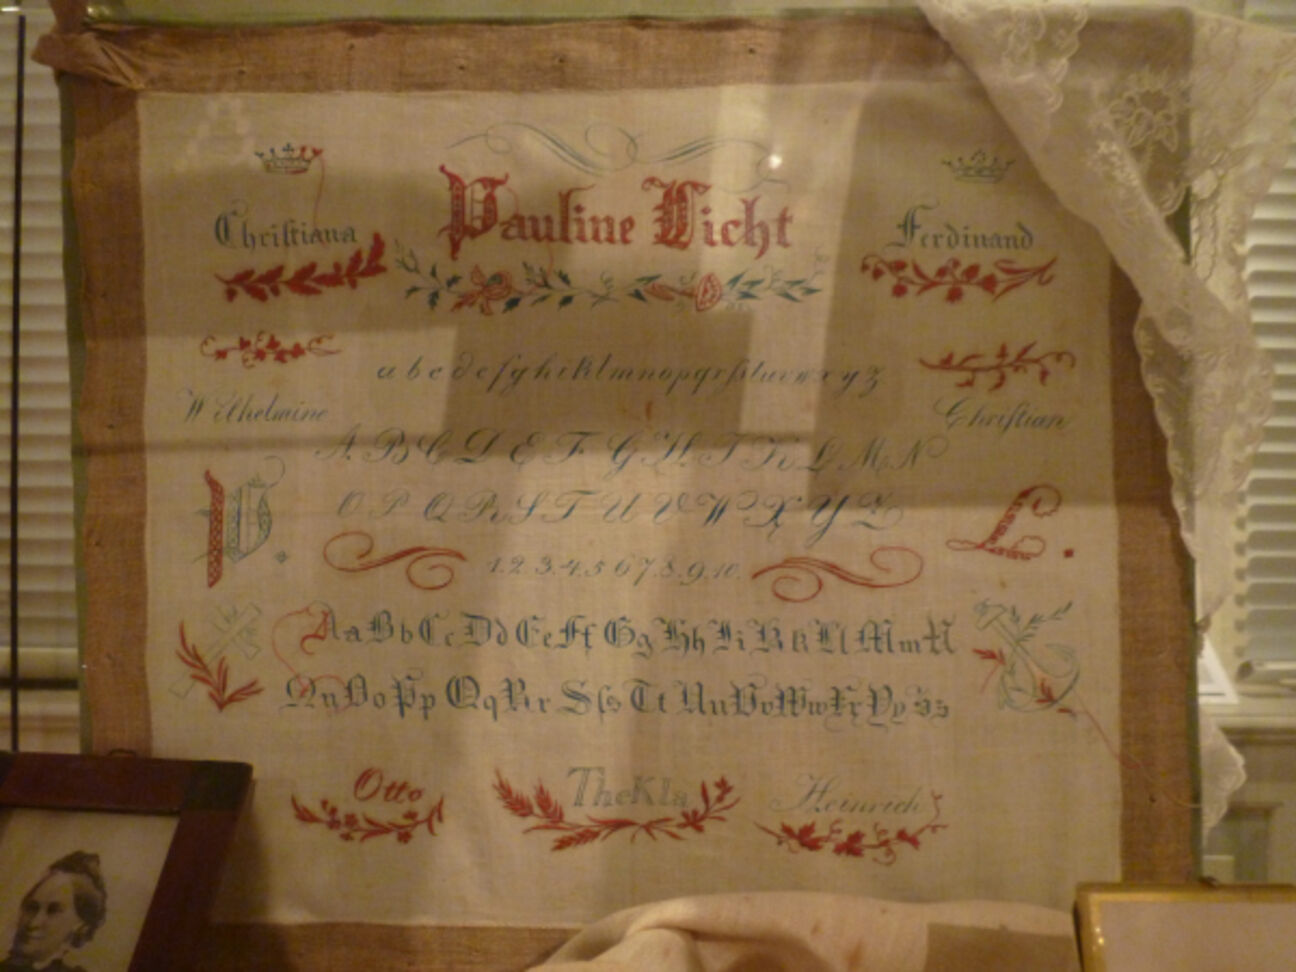 Christiana Pauline Licht Ferdinand
a b c d e f g h i k l m n o p q r ſ s t u v w x y z
Wilhelmine Christian
A. B C D E F G H. I K L M N
O P Q R S T U V W X Y Z
P. L.
1.2.3.4.5 6 7.8.9.10.
Aa Bb Cc Dd Ee Ff Gg Hh Ii Kk Ll Mm N
Nn Oo Pp Qq Rr Sſs Tt Uu Vv Ww Xx Yy Zz
Otto Thekla Heinrich